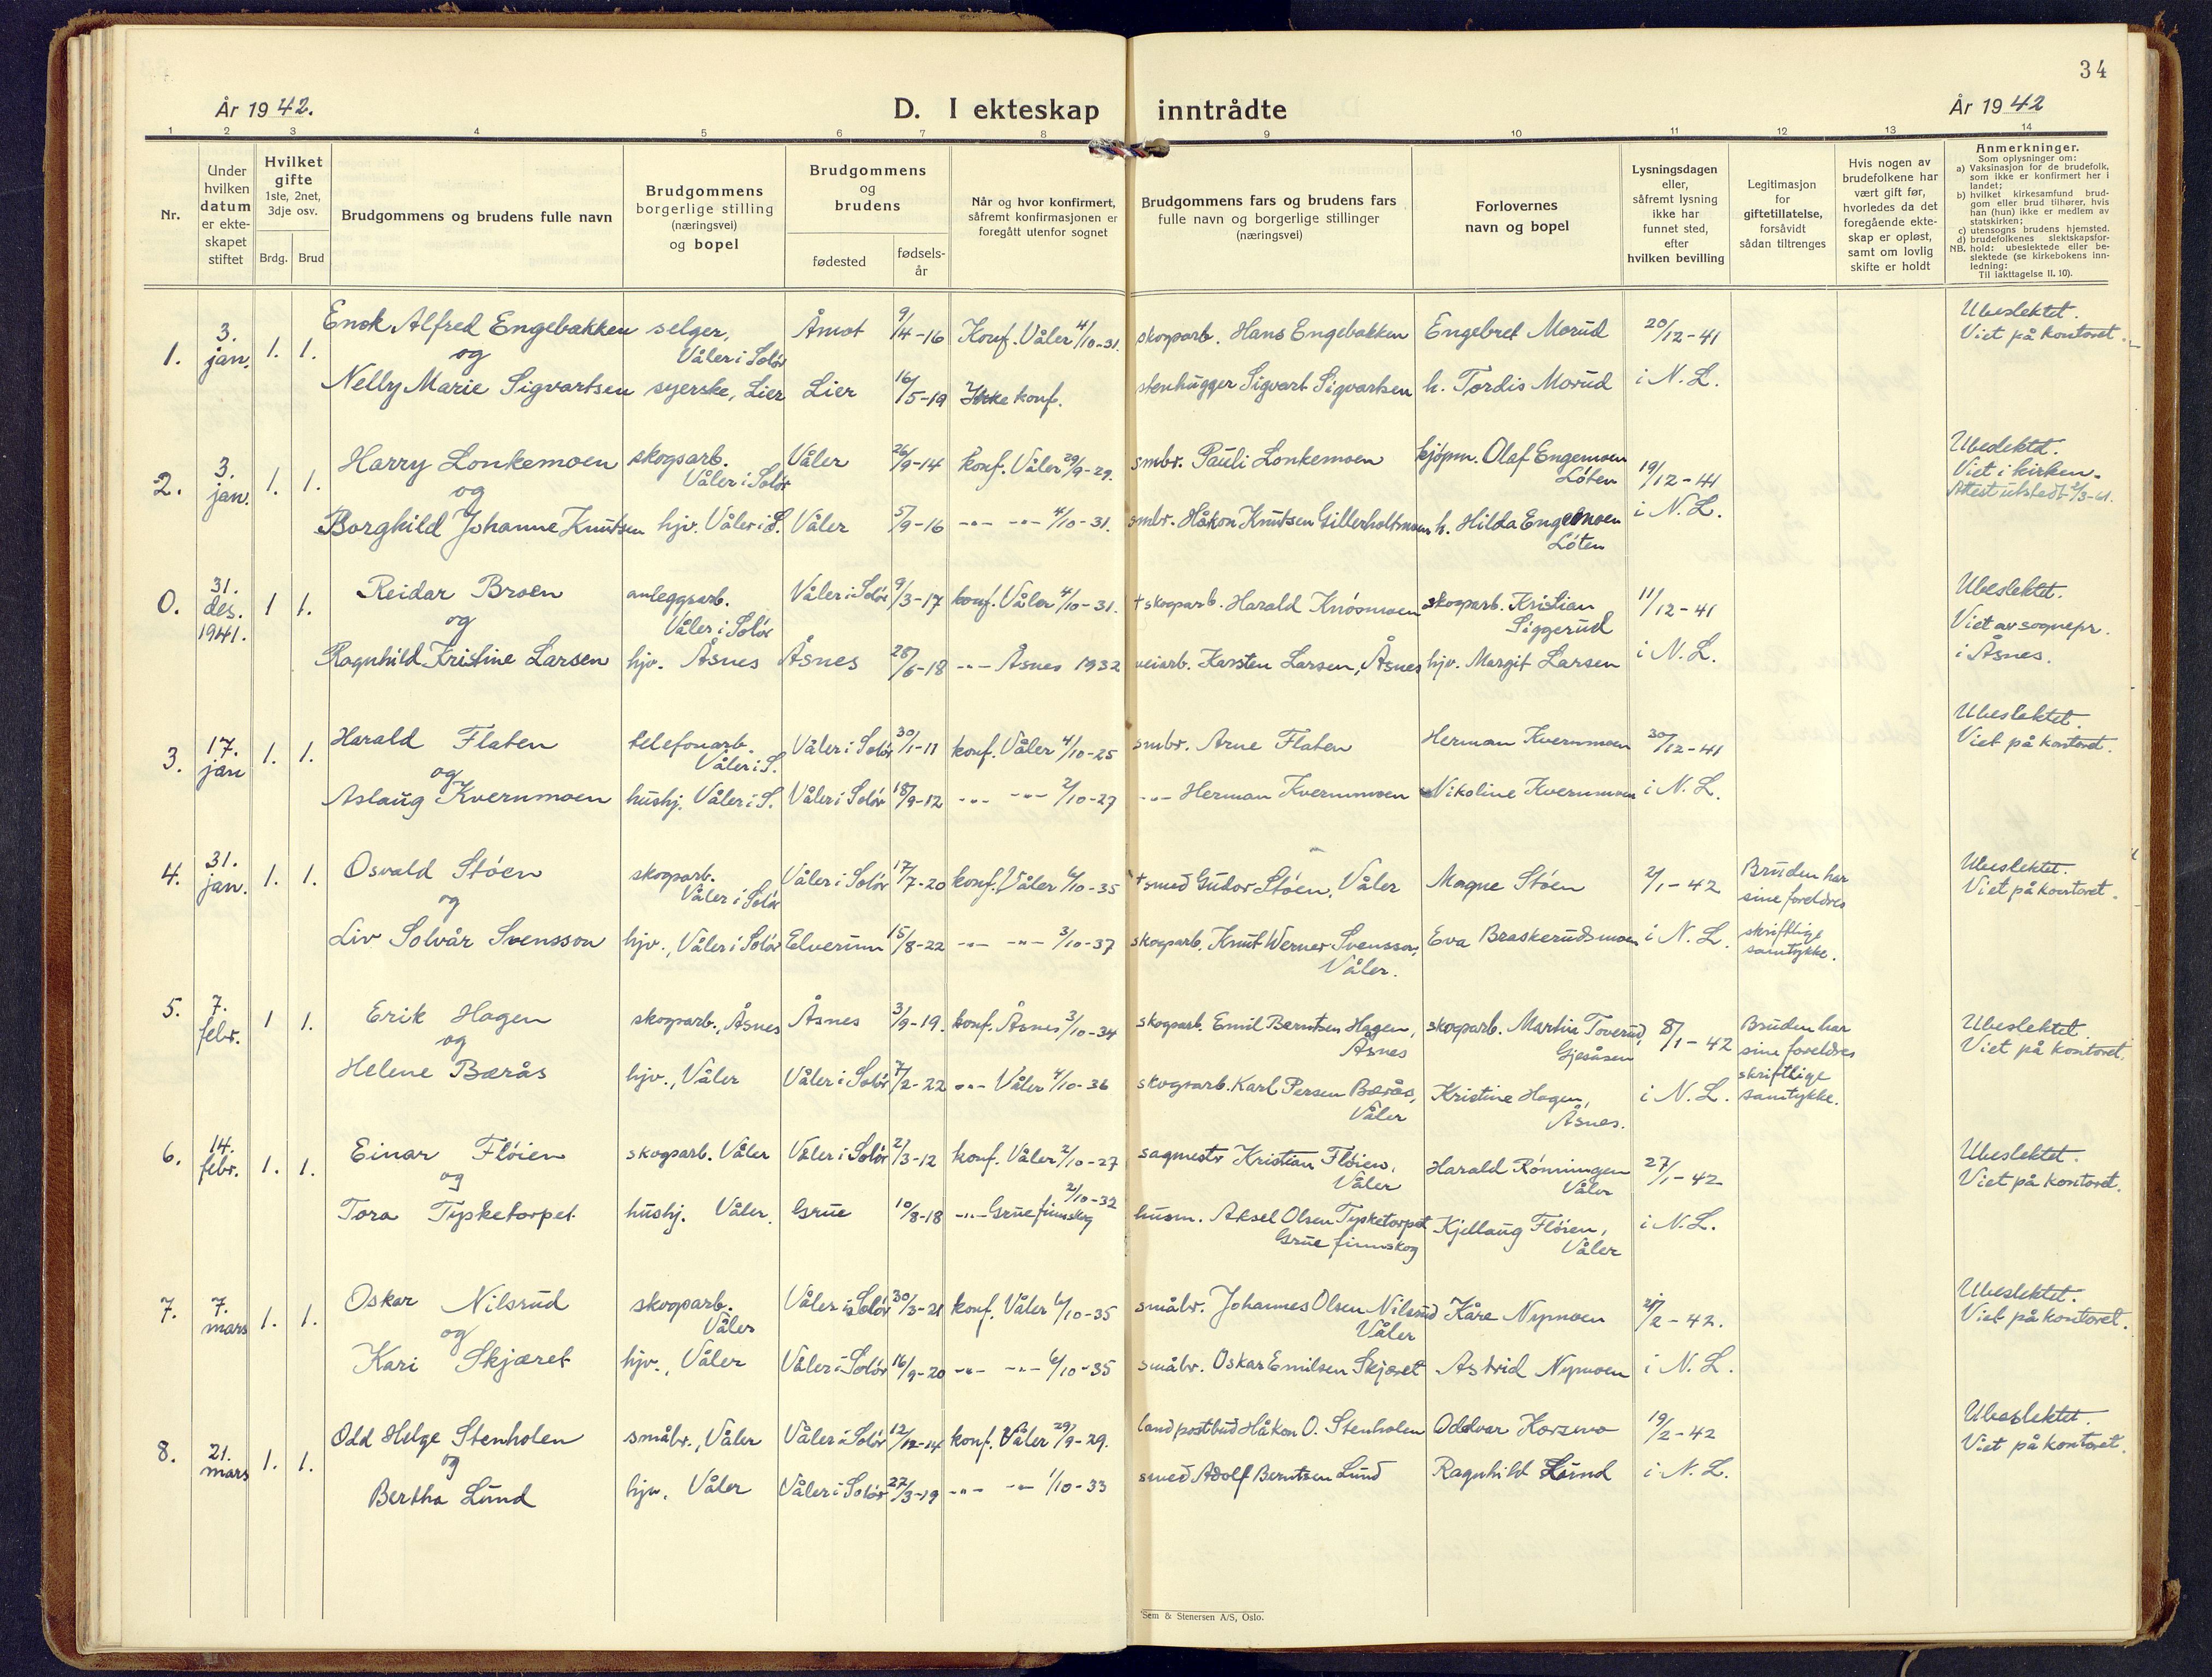 34
År 1942.
D. I ekteskap inntrådte
År 1942
1 2 3 4 5 6 7 8 9 10 11 12 13 14
Nr.
Under hvilken datum er ekte-skapet stiftet
Hvilket gifte 1ste, 2net, 3dje osv.
Brdg. Brud
Brudgommens og brudens fulle navn
Brudgommens borgerlige stilling (næringsvei) og bopel
Brudgommens og brudens
fødested
fødsels-år
Når og hvor konfirmert, såfremt konfirmasjonen er foregått utenfor sognet
Brudgommens fars og brudens fars fulle navn og borgerlige stillinger (næringsvei)
Forlovernes navn og bopel
Lysningsdagen eller, såfremt lysning ikke har funnet sted, efter hvilken bevilling
Legitimasjon for giftetillatelse, forsåvidt sådan tiltrenges
Hvis nogen av brudefolkene har vært gift før, hvorledes da det foregående ekte-skap er opløst, samt om lovlig skifte er holdt
Anmerkninger.
Som oplysninger om:
a) Vaksinasjon for de brudefolk, som ikke er konfirmert her i landet;
b) hvilket kirkesamfund brud-gom eller brud tilhører, hvis han (hun) ikke er medlem av statskirken;
c) utensogns brudens hjemsted.
d) brudefolkenes slektskapsfor-hold: ubeslektede eller be-slektede (se kirkebokens inn-ledning:
NB.
Til iakttagelse II. 10).
1. 3. jan. 1. 1. Enok Alfred Engebakken selger, Våler i Solør Åmot 9/4-16 Konf. Våler 4/10-31. skogsarb. Hans Engebakken Engebret Morud 20/12-41 Ubeslektet. Viet på kontoret.
og
Nelly Marie Sigvartsen syerske, Lier Lier 16/5-19 Ikke konf. stenhugger Sigvart Sigvartsen h. Tordis Morud i N. L.
2. 3. jan. 1. 1. Harry Lonkemoen skogsarb. Våler i Solør Våler 26/9-14 konf. Våler 29/9-29. smbr. Pauli Lonkemoen kjøpm. Olaf Engemoen Løten 19/12-41 Ubeslektet. Viet i kirken. Attest utstedt 2/3-61.
og
Borghild Johanne Knutsen hjv. Våler i S. Våler 5/9-16 -"- -"- 4/10-31. smbr. Håkon Knutsen Gillerholtmoen h. Hilda Engemoen Løten i N. L.
0. 31. des. 1941. 1 1. Reidar Broen anleggsarb. Våler i Solør Våler i Solør 9/3-17 konf. Våler 4/10-31. † skogsarb. Harald Knosmoen skogsarb. Kristian Siggerud 11/12-41 Ubeslektet. Viet av sognepr. i Åsnes.
og
Ragnhild Kristine Larsen hjv. Åsnes Åsnes 28/6-18 -"- Åsnes 1932 veiarb. Karsten Larsen, Åsnes hjv. Margit Larsen i N. L.
3. 17. jan 1. 1. Harald Flaten telefonarb. Våler i S. Våler i Solør 30/1-11 konf. Våler 4/10-25 smbr. Arne Flaten Herman Kvernmoen 30/12-41 Ubeslektet. Viet på kontoret.
og
Aslaug Kvernmoen hushj. Våler i S. Våler i Solør 18/9-12 -"- -"- 2/10-27 -"- Herman Kvernmoen Nikoline Kvernmoen i N. L.
4. 31. jan. 1. 1. Osvald Støen skogsarb. Våler i Solør Våler i Solør 17/7-20 konf. Våler 6/10-35 † smed Gudor Støen, Våler Magne Støen 2/1-42 Bruden har sine foreldres skriftlige samtykke. Ubeslektet. Viet på kontoret.
og
Liv Solvår Svensson hjv., Våler i Solør Elverum 15/8-22 -"- -"- 3/10-37 skogsarb. Knut Werner Svensson, Våler. Eva Braskerudsmoen i N. L.
5. 7. febr. 1 1. Erik Hagen skogsarb., Åsnes Åsnes 3/9-19. konf. Åsnes 3/10-34 skogsarb. Emil Berntsen Hagen, Åsnes skogsarb. Martin Toverud, Gjesåsen 8/1-42 Bruden har sine foreldres skriftlige samtykke. Ubeslektet. Viet på kontoret.
og
Helene Bærås hjv., Våler Våler i Solør 7/2-22 -"- Våler 4/10-36 skogsarb. Karl Persen Bærås, Våler Kristine Hagen, Åsnes. i N. L.
6. 14. febr. 1. 1. Einar Fløien skogsarb. Våler Våler i Solør 21/3-12 konf. Våler 2/10-27 sagmestr Kristian Fløien, Våler Harald Rønningen Våler 27/1-42 Ubeslektet. Viet på kontoret.
og
Tora Tysketorpet hushj. Våler. Grue 10/8-18 -"- Grue finnskog 2/10-32 husm. Aksel Olsen Tysketorpet Grue finnskog Kjellaug Fløien, Våler i N. L.
7. 7. mars 1. 1. Oskar Nilsrud skogsarb. Våler Våler i Solør 30/3-21 konf. Våler 6/10-35 småbr. Johannes Olsen Nilsrud Våler Kåre Nymoen /2-42. Ubeslektet. Viet på kontoret.
og
Kari Skjæret hjv., Våler Våler i Solør 16/9-20 -"- -"- 6/10-35 småbr. Oskar Emilsen Skjæret Astrid Nymoen i N. L.
8. 21. mars 1. 1. Odd Helge Stenholen småbr., Våler Våler i Solør 12/12-14 konf. Våler 29/9-29. landpostbud Håkon O. Stenholen Oddvar Korsmo 19/2-42 Ubeslektet. Viet på kontoret.
og
Bertha Lund hjv. Våler Våler i Solør 27/3-19 -"- -"- 1/10-33 smed Adolf Berntsen Lund Ragnhild Lund i N. L.
Sem & Stenersen A/S, Oslo.